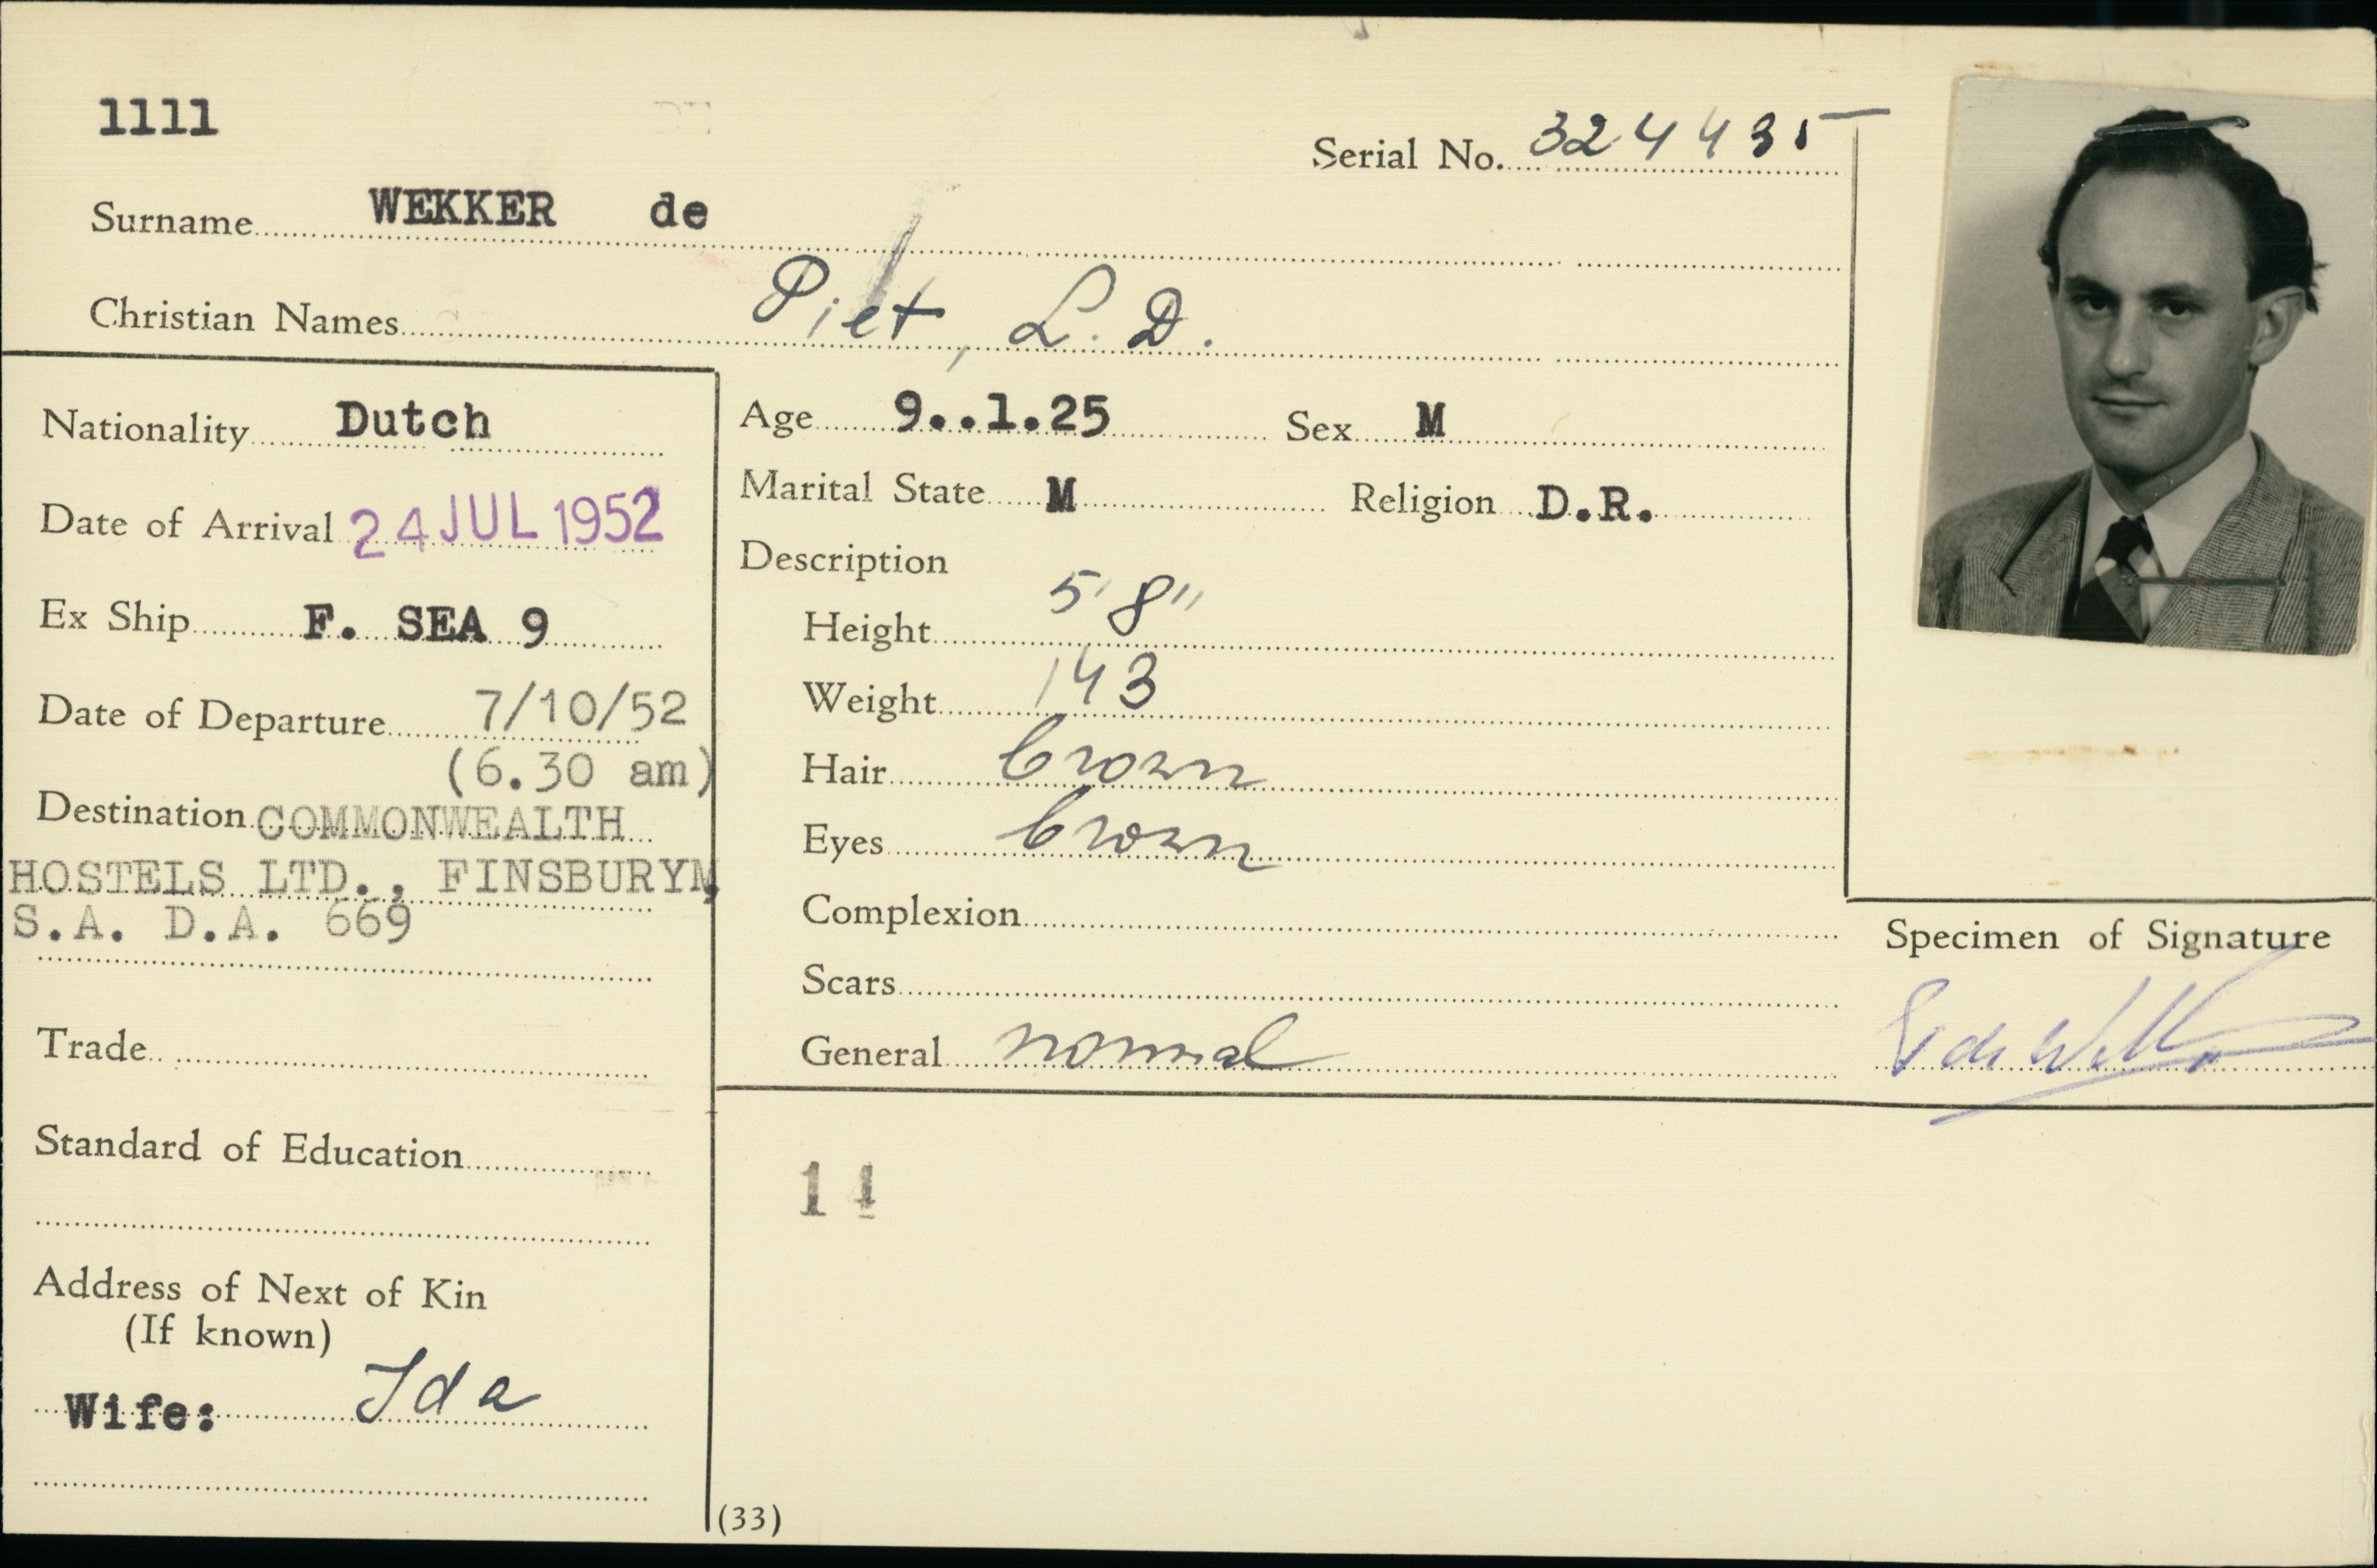 1111
Serial No. 324435
Surname WEKKER de
Christian Names Piet, L. D.
Nationality Dutch
Date of Arrival 24 JUL 1952
Ex Ship F. SEA 9
Date of Departure 7/10/52
(6.30 am)
Destination COMMONWEALTH
HOSTELS LTD., FINSBURY,
S.A. D.A. 669
Trade
Standard of Education
Address of Next of Kin
(If known)
Wife: Ida
Age 9..1.25 Sex M
Marital State M Religion D.R.
Description
Height 5'8"
Weight 143
Hair brown
Eyes brown
Complexion
Scars
General normal
14
(33)
Specimen of Signature